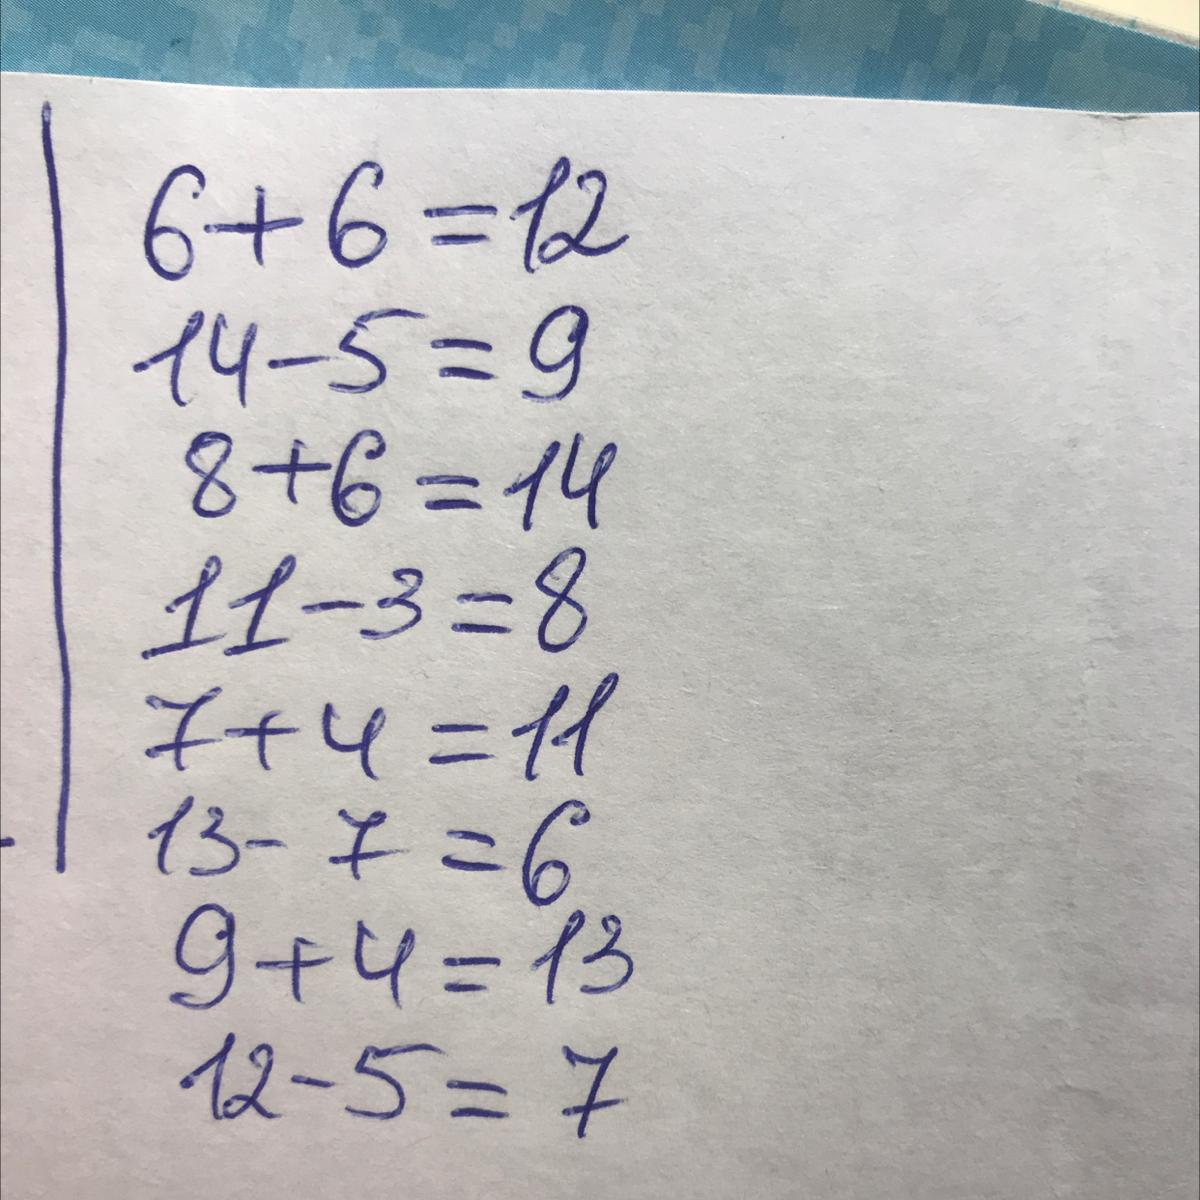 6+6=12
14-5=9
8+6=14
11-3=8
7+4=11
13-7=6
9+4=13
12-5=7